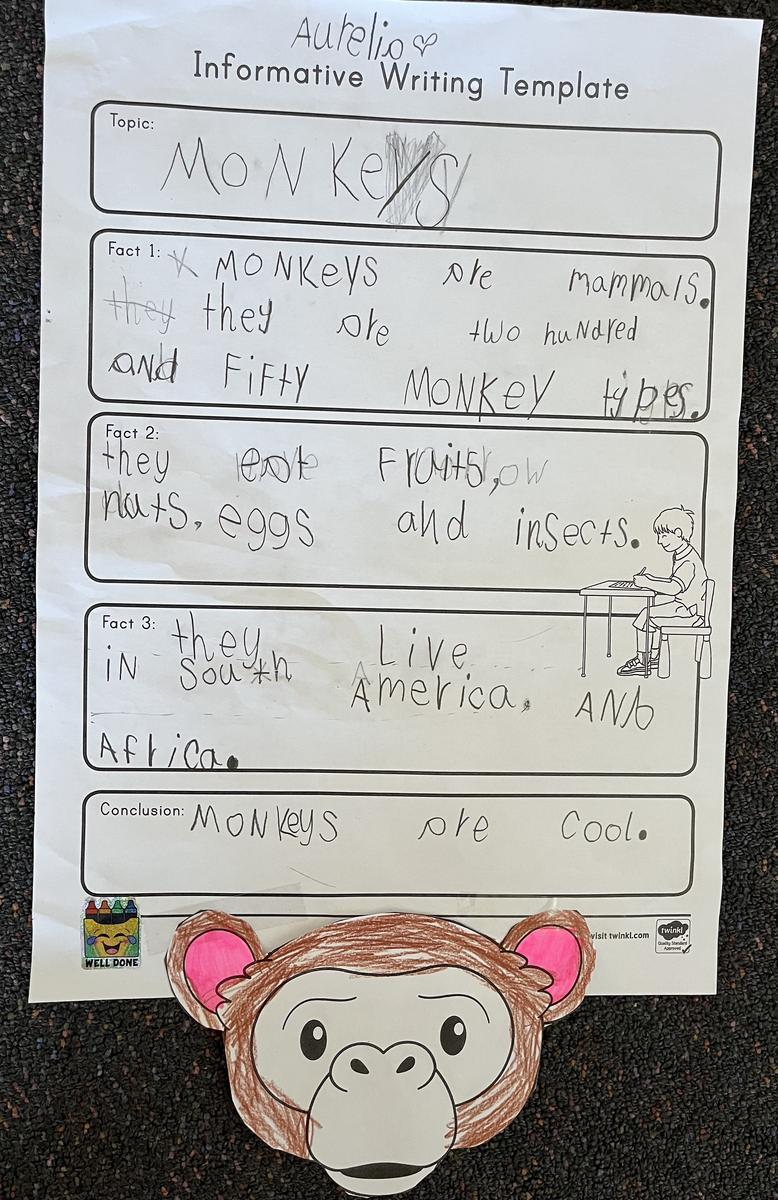 Aurelio
Informative Writing Template
Topic:
MoNKeys
Fact 1: MONKeYS are mammals.
they they are two huNdred
aNd FiFtY MONKEY types.
Fact 2:
they eat Fruits,
nuts. eggs and insects.
Fact 3: they Live
iN South America. AND
Africa.
Conclusion: MONKeys are Cool.
WELL DONE
visit twinkl.com
twinkl
Quality Standard
Approved